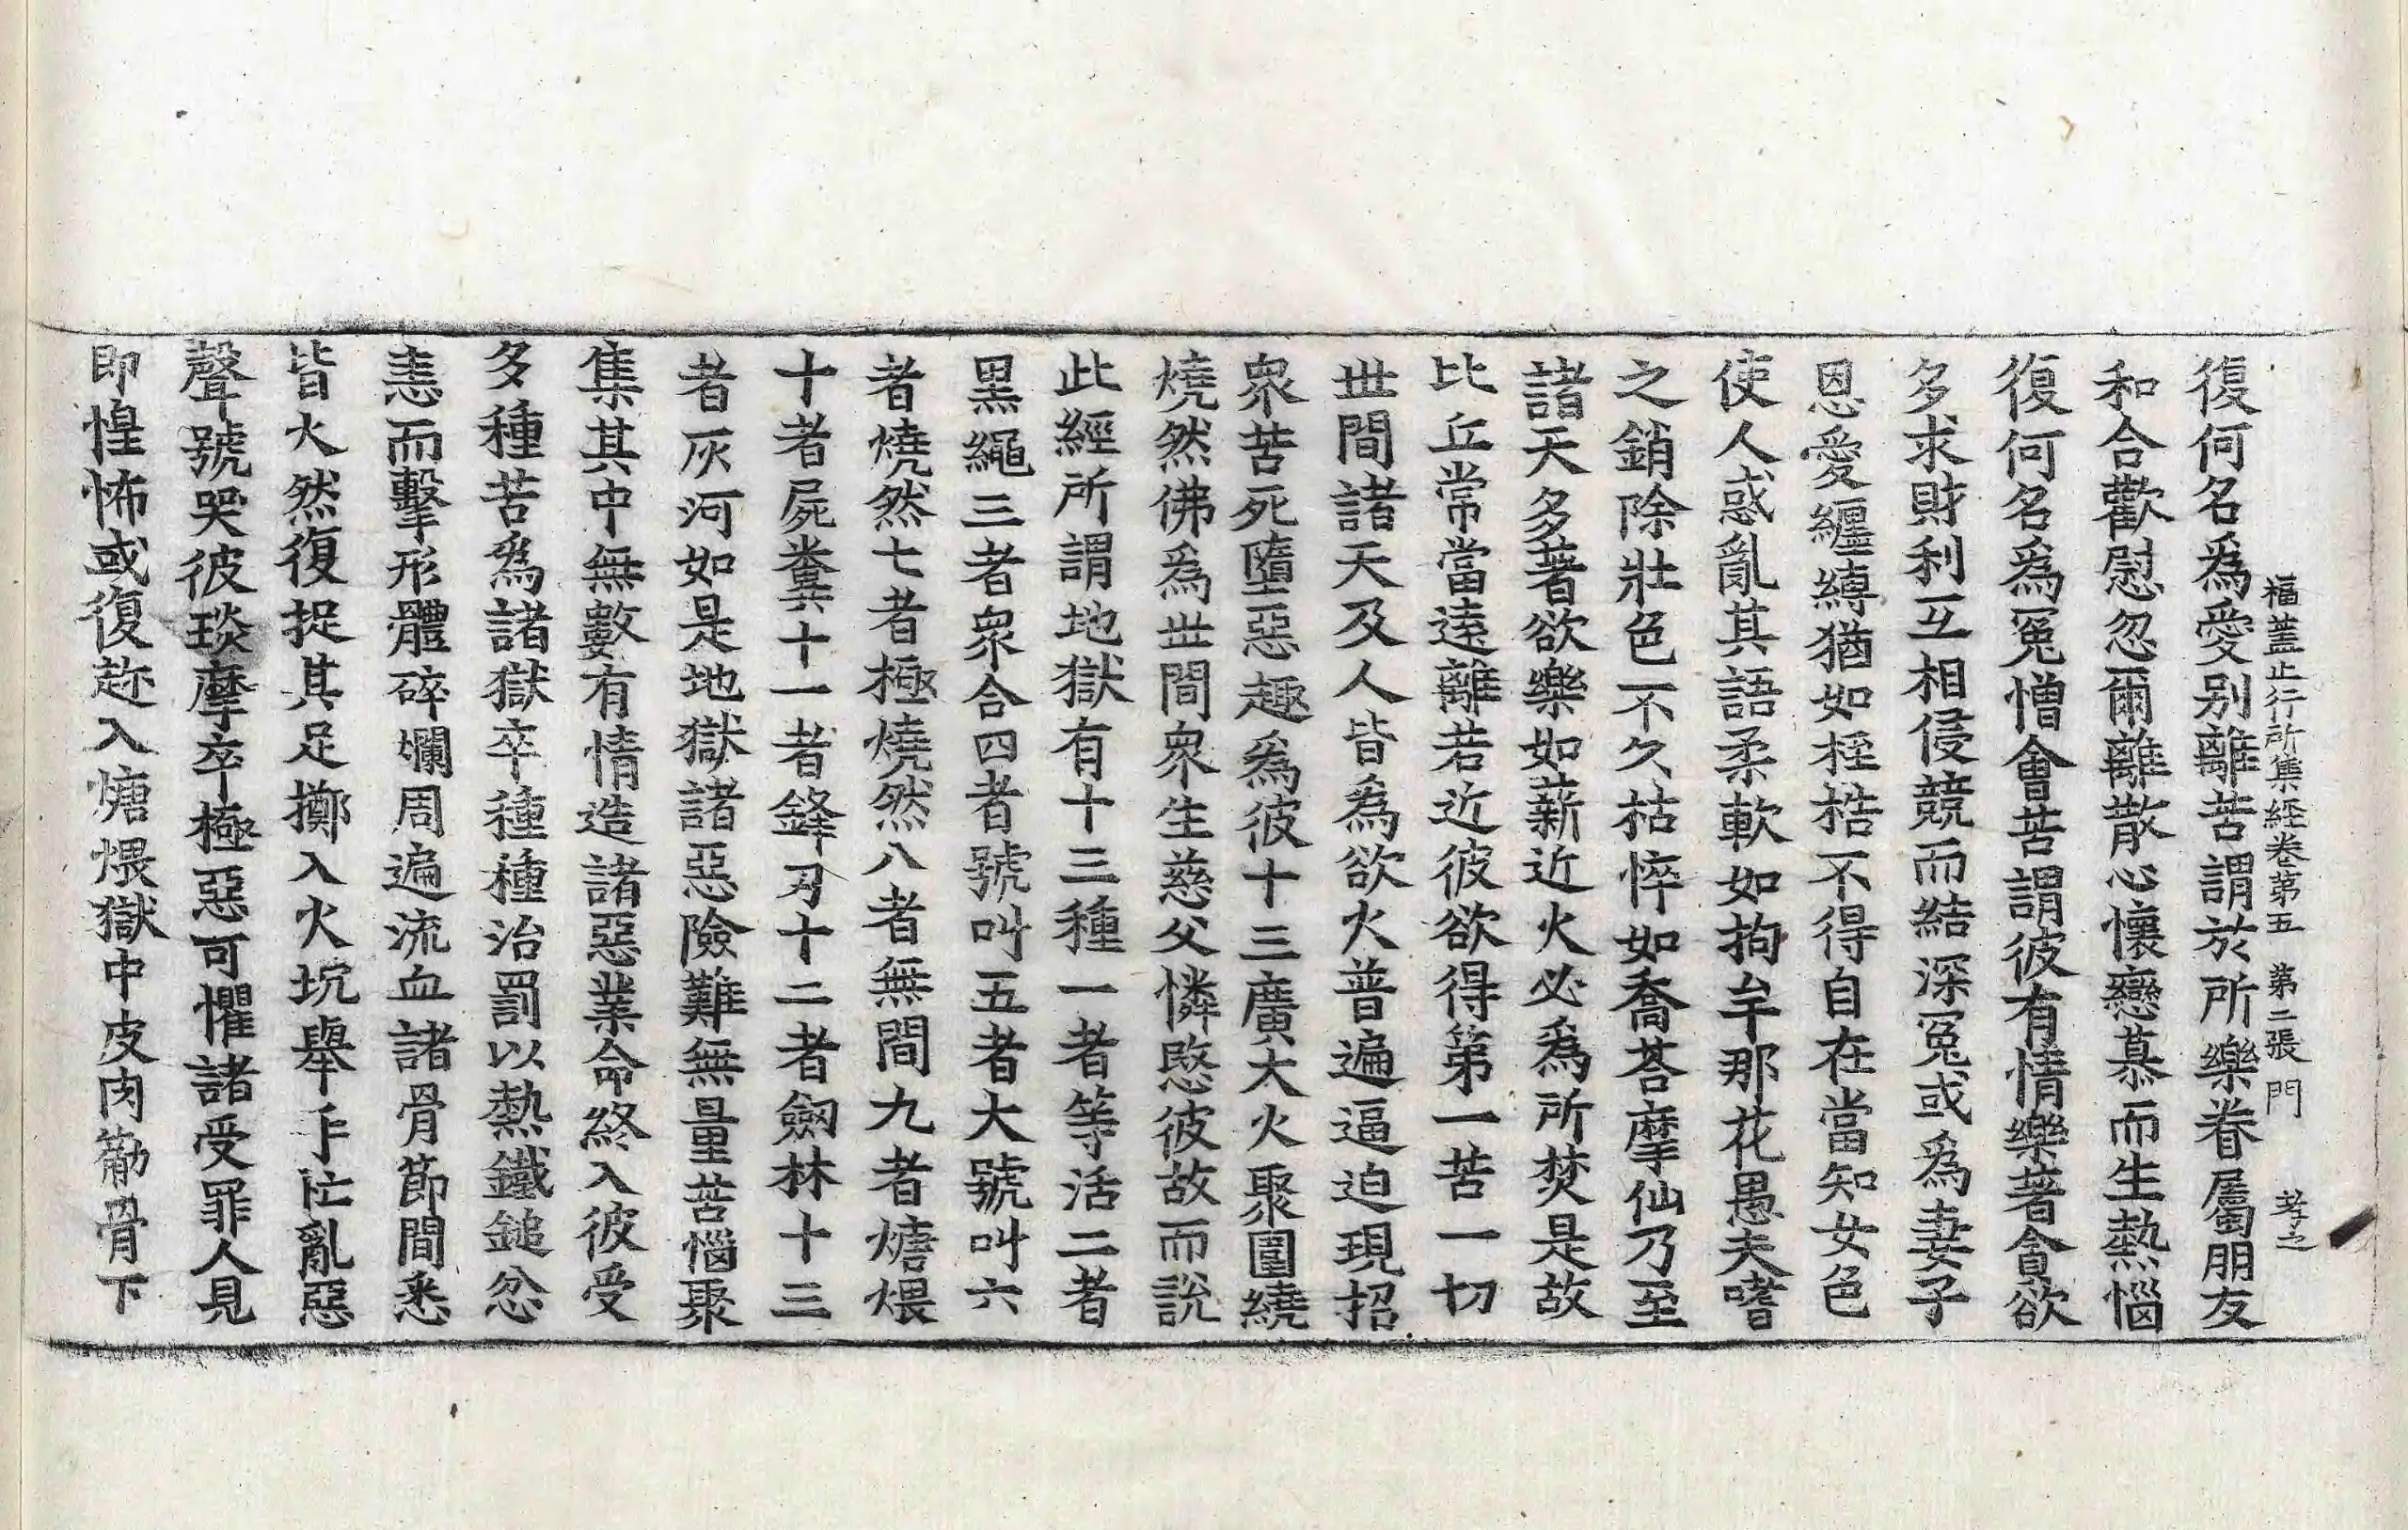 福蓋正行所集経卷第五 第二張 門 孝之
復何名為愛別離苦謂於所樂眷屬朋友
和合歡慰忽爾離散心懷戀慕而生熱惱
復何名為冤憎會苦謂彼有情樂著會欲
多求財利互相侵競而結深冤或為妻子
恩愛纒縛猶如桎梏不得自在當知女色
使人惑亂其語柔軟如拘牟那花愚夫嗜
之銷除壯色不久枯悴如喬荅摩仙乃至
諸天多著欲樂如薪近火必為所焚是故
比丘常當遠離若近彼欲得第一苦一切
世間諸天及人皆為欲火普遍逼迫現招
衆苦死墮惡趣為彼十三廣大火聚圍繞
燒然佛為世間衆生慈父憐愍彼故而說
此經所謂地獄有十三種一者等活二者
黑繩三者衆合四者號叫五者大號叫六
者燒然七者極燒然八者無間九者煻煨
十者屍糞十一者鋒刃十二者劒林十三
者灰河如是地獄諸惡險難無量苦惱聚
集其中無數有情造諸惡業命終入彼受
多種苦為諸獄卒種種治罰以熱鐵鎚忿
恚而擊形體碎爛周遍流血諸骨節間悉
皆火然復捉其足擲入火坑舉手忙亂惡
聲號哭彼琰摩卒極惡可懼諸受罪人見
即惶怖或復趂入煻煨獄中皮肉筋骨下